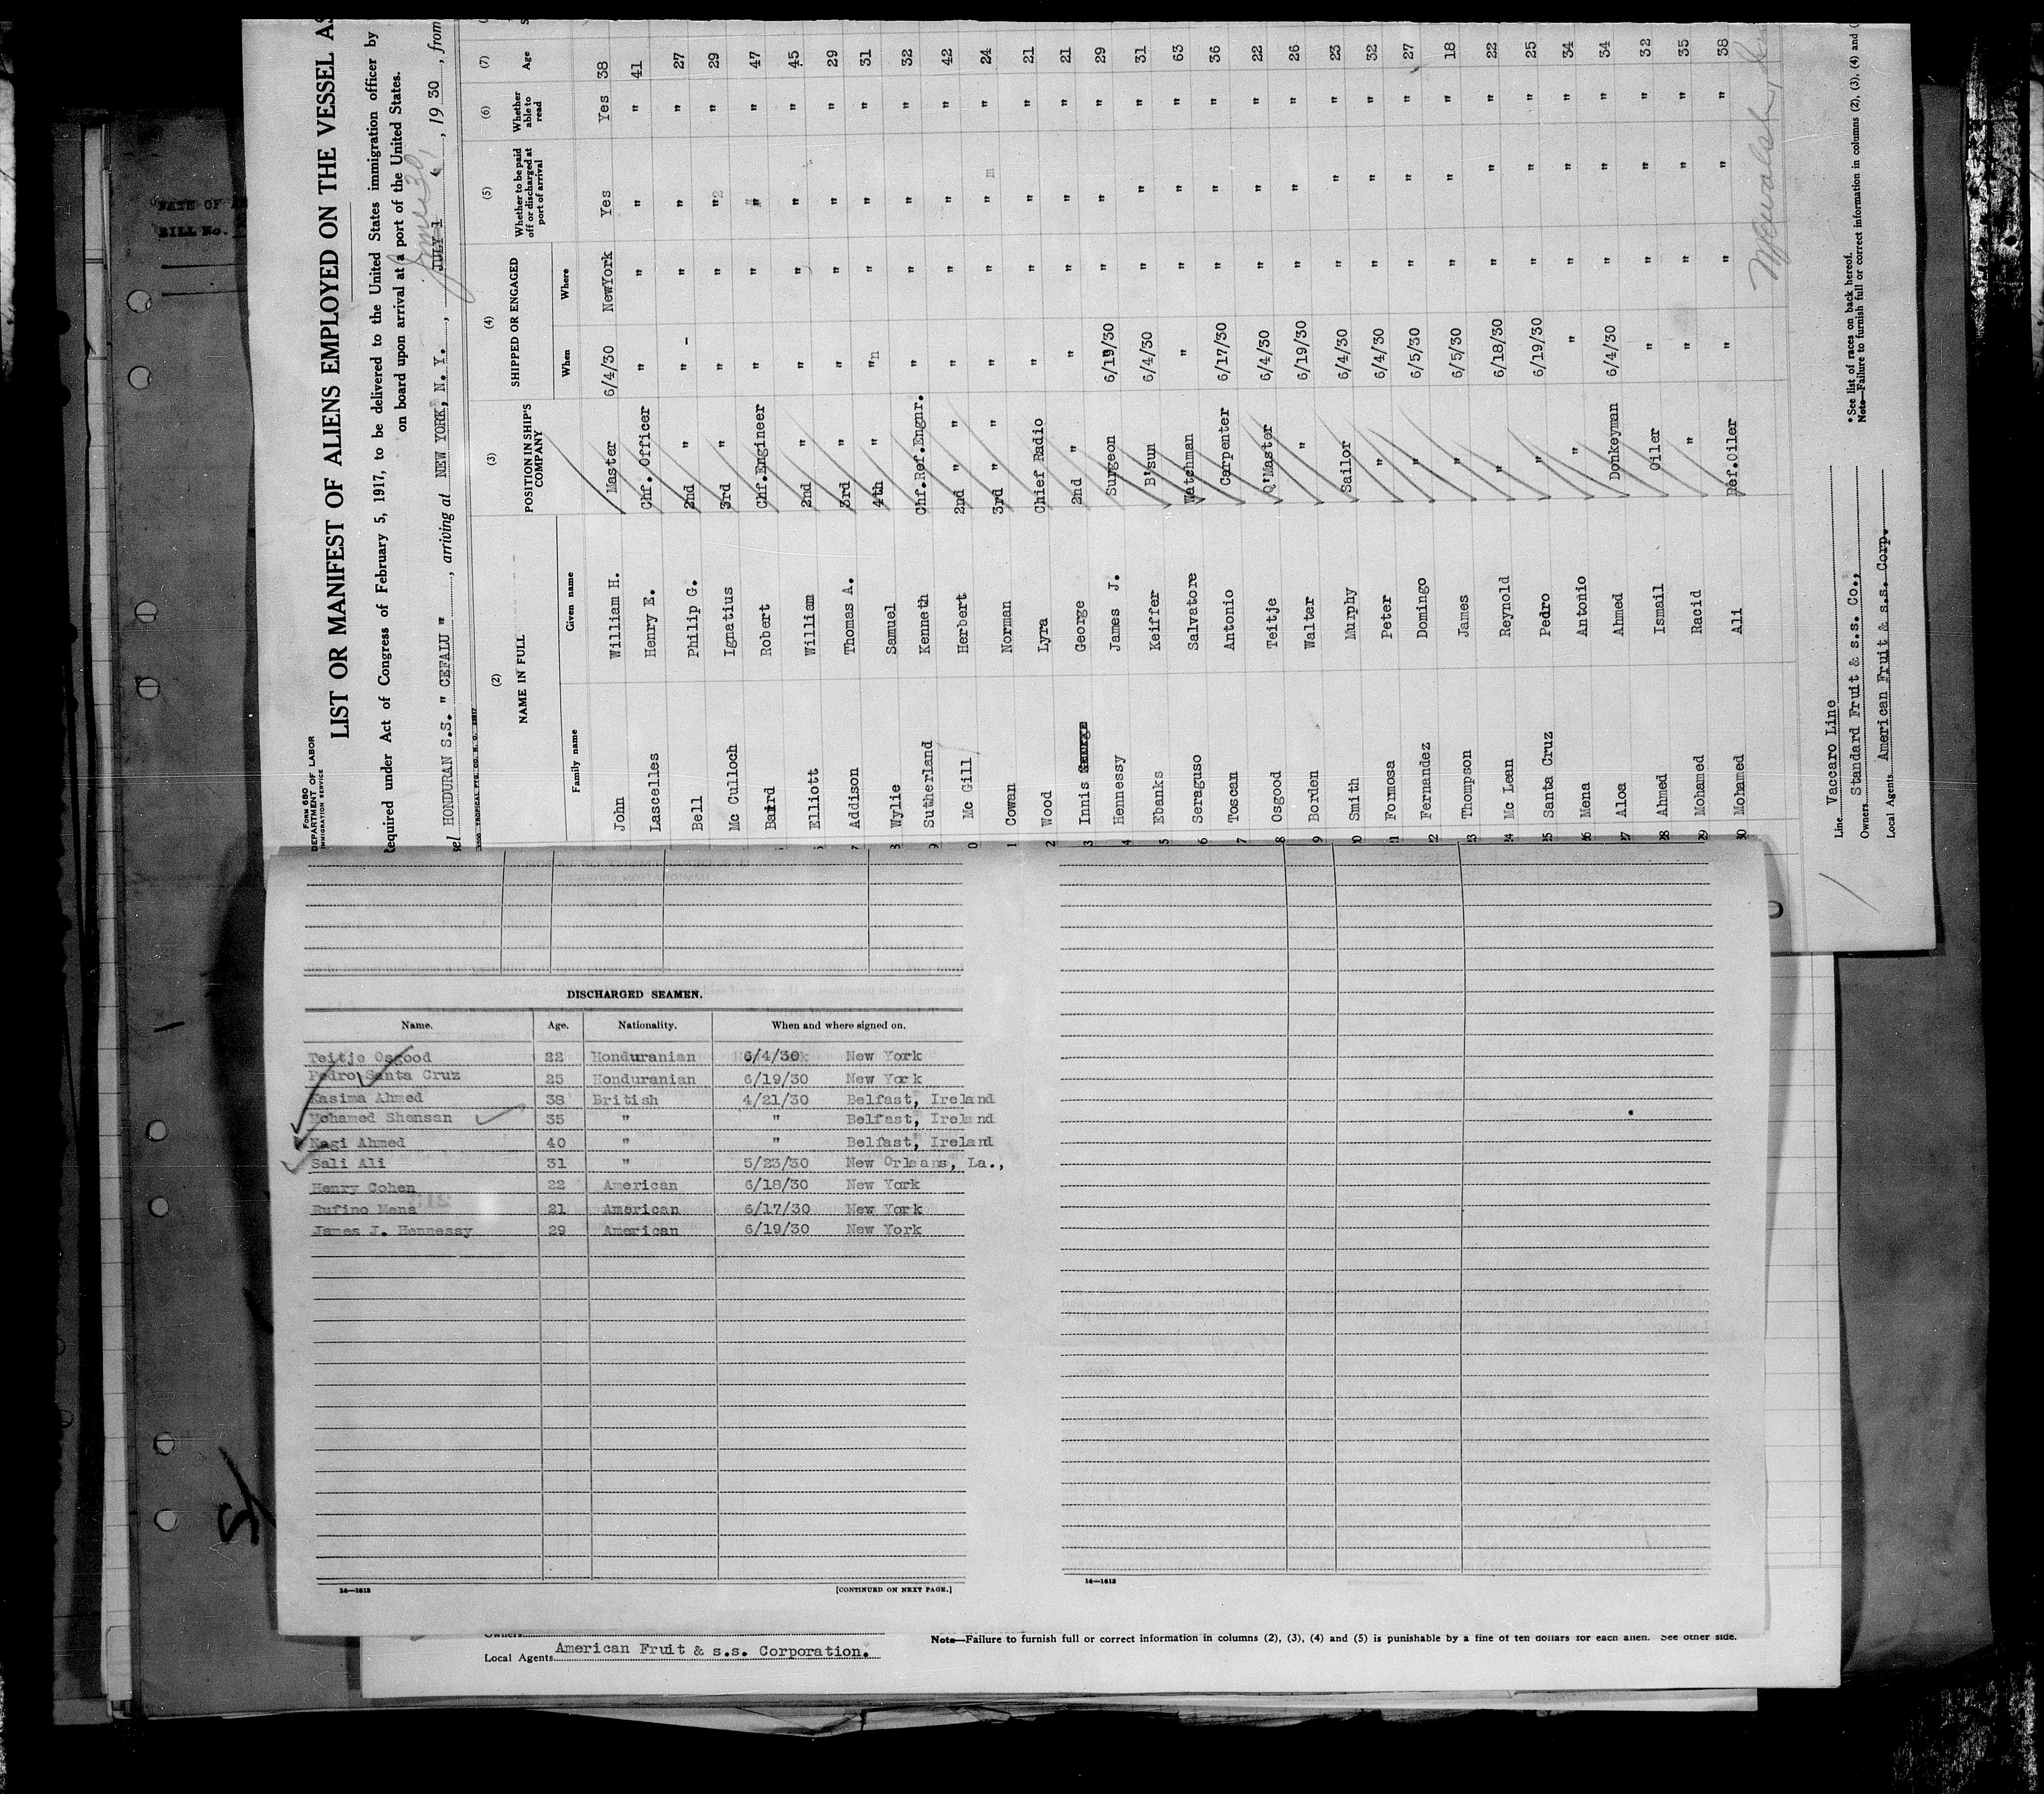 DATE OF
BILL No.
Form 680
DEPARTMENT OF LABOR
IMMIGRATION SERVICE
LIST OR MANIFEST OF ALIENS EMPLOYED ON THE VESSEL AS
Required under Act of Congress of February 5, 1917, to be delivered to the United States immigration officer by
on board upon arrival at a port of the United States.
HONDURAN S.S. " CEFALU " , arriving at NEW YORK, N. Y. , JULY 1 , 19 30 , from
June 30,
(2) (3) (4) (5) (6) (7)
NAME IN FULL POSITION IN SHIP'S COMPANY SHIPPED OR ENGAGED Whether to be paid off or discharged at port of arrival Whether able to read Age
Family name Given name When Where
John William H. Master 6/4/30 NewYork Yes Yes 38
Lascelles Henry E. Chf. Officer " " " " 41
Bell Philip G. 2nd " " - " " " 27
Mc Culloch Ignatius 3rd " " " " " 29
Baird Robert Chf.Engineer " " " " 47
Elliott William 2nd " " " " " 45
Addison Thomas A. 3rd " " " " " 29
Wylie Samuel 4th " "n " " " 31
Sutherland Kenneth Chf.Ref.Engnr. " " " " 32
Mc Gill Herbert 2nd " " " " " " 42
Cowan Norman 3rd " " " " " " 24
Wood Lyra Chief Radio " " " " 21
Innis George 2nd " " " " " 21
Hennessy James J. Surgeon 6/19/30 " " " 29
Ebanks Keiffer B'sun 6/4/30 " " " 31
Seraguso Salvatore Watchman " " " " 63
Toscan Antonio Carpenter 6/17/30 " " " 36
Osgood Teitje Q'Master 6/4/30 " " " 22
Borden Walter " 6/19/30 " " " 26
Smith Murphy Sailor 6/4/30 " " " 23
Formosa Peter " 6/4/30 " " " 32
Fernandez Domingo " 6/5/30 " " " 27
Thompson James " 6/5/30 " " " 18
Mc Lean Reynold " 6/18/30 " " " 22
Santa Cruz Pedro " 6/19/30 " " " 25
Mena Antonio " " " " " 34
Aloa Ahmed Donkeyman 6/4/30 " " " 34
Ahmed Ismail Oiler " " " " 32
Mohamed Racid " " " " " 35
30 Mohamed Ali Ref.Oiler " " " " 38
Line Vaccaro Line
Owners Standard Fruit & s.s. Co.,
Local Agents American Fruit & s.s. Corp.
*See list of races on back hereof.
Note—Failure to furnish full or correct information in columns (2), (3), (4) and
DISCHARGED SEAMEN.
Name. Age. Nationality. When and where signed on.
Teitje Osgood 22 Honduranian 6/4/30 New York
Pedro Santa Cruz 25 Honduranian 6/19/30 New York
Kasima Ahmed 38 British 4/21/30 Belfast, Ireland
Mohamed Shensan 35 " " Belfast, Ireland
Nagi Ahmed 40 " " Belfast, Ireland
Sali Ali 31 " 5/23/30 New Orleans, La.,
Henry Cohen 22 American 6/18/30 New York
Rufino Mena 21 American 6/17/30 New York
James J. Hennessy 29 American 6/19/30 New York
14—1613 [CONTINUED ON NEXT PAGE.]
14—1613
Owners
Local Agents American Fruit & s.s. Corporation.
Note—Failure to furnish full or correct information in columns (2), (3), (4) and (5) is punishable by a fine of ten dollars for each alien. See other side.